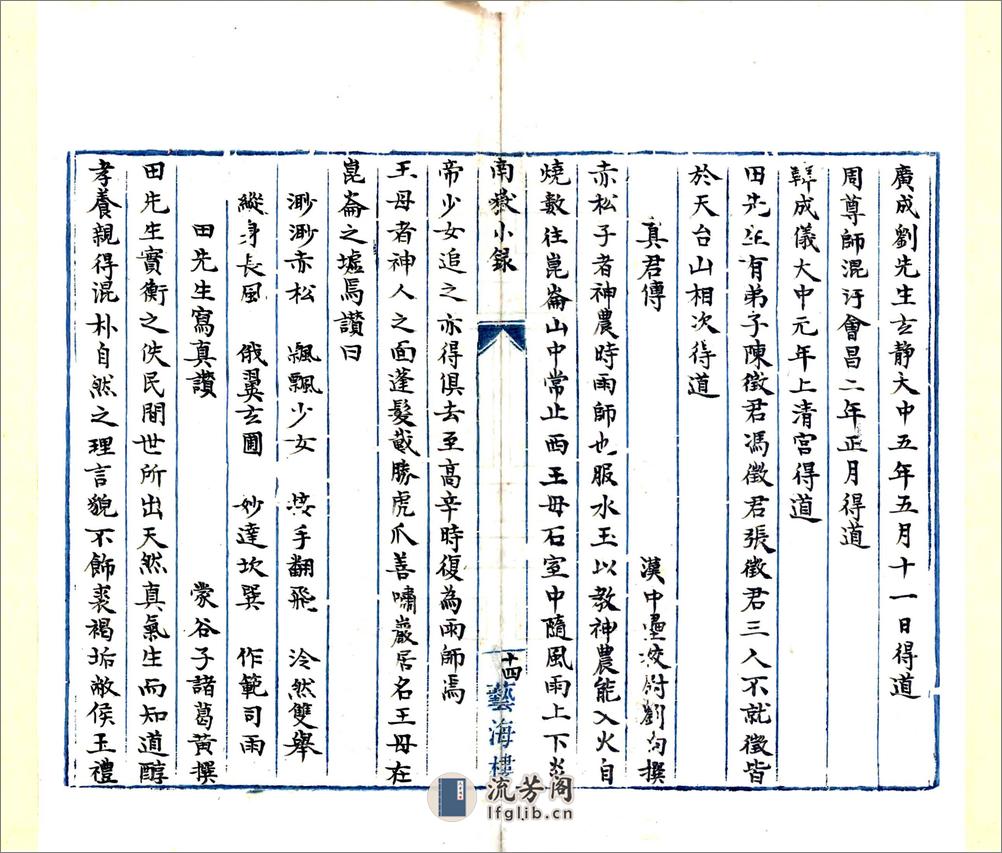 廣成劉先生玄静大中五年五月十一日得道
周尊師混沌會昌二年正月得道
韓成儀大中元年上清宮得道
田先生有弟子陳徵君馮徵君張徵君三人不就徵皆
於天台山相次得道
真君傳 漢中壘挍尉劉向撰
赤松子者神農時雨師也服水玉以教神農能入火自
燒數往崑崙山中常止西王母石室中隨風雨上下炎
南嶽小録 十四 藝海樓
帝少女追之亦得俱去至高辛時復為雨師焉
王母者神人之面蓬髮戴勝虎爪善嘯巖居名王母在
崑崙之墟焉讃曰
渺渺赤松 飄飄少女 接手翻飛 泠然雙舉
縱身長風 俄翼玄圃 妙達坎巽 作範司雨
田先生寫真讃 蒙谷子諸葛黃撰
田先生實衡之佚民間世所出天然真氣生而知道醇
孝養親得混朴自然之理言貌不飾裘褐垢敝侯王禮
流芳阁
lfglib.cn